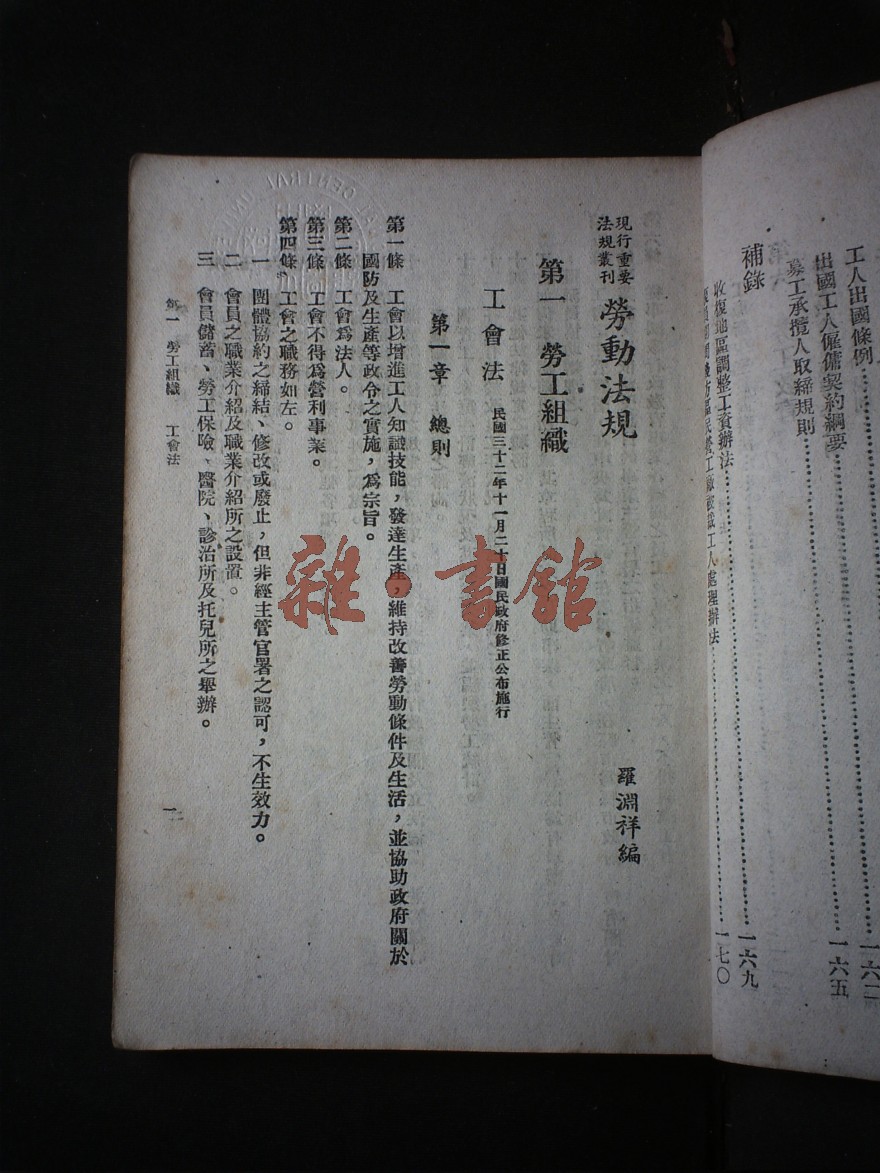 工人出國條例…………一六二
出國工人僱傭契約綱要…………一六五
募工承攬人取締規則
補錄
收復地區調整工資辦法…………一六九
工人處理辦法…………一七〇
現行重要
法規叢刊
勞動法規
羅淵祥編
第一 勞工組織
工會法 民國三十二年十一月二十日國民政府修正公布施行
第一章 總則
第一條 工會以增進工人知識技能，發達生產，維持改善勞動條件及生活，並協助政府關於
國防及生產等政令之實施，為宗旨。
第二條 工會為法人。
第三條 工會不得為營利事業。
第四條 工會之職務如左。
一 團體協約之締結、修改或廢止，但非經主管官署之認可，不生效力。
二 會員之職業介紹及職業介紹所之設置。
三 會員儲蓄、勞工保險、醫院、診治所及托兒所之舉辦。
第一 勞工組織 工會法
一
雜·書館
CENTRAL